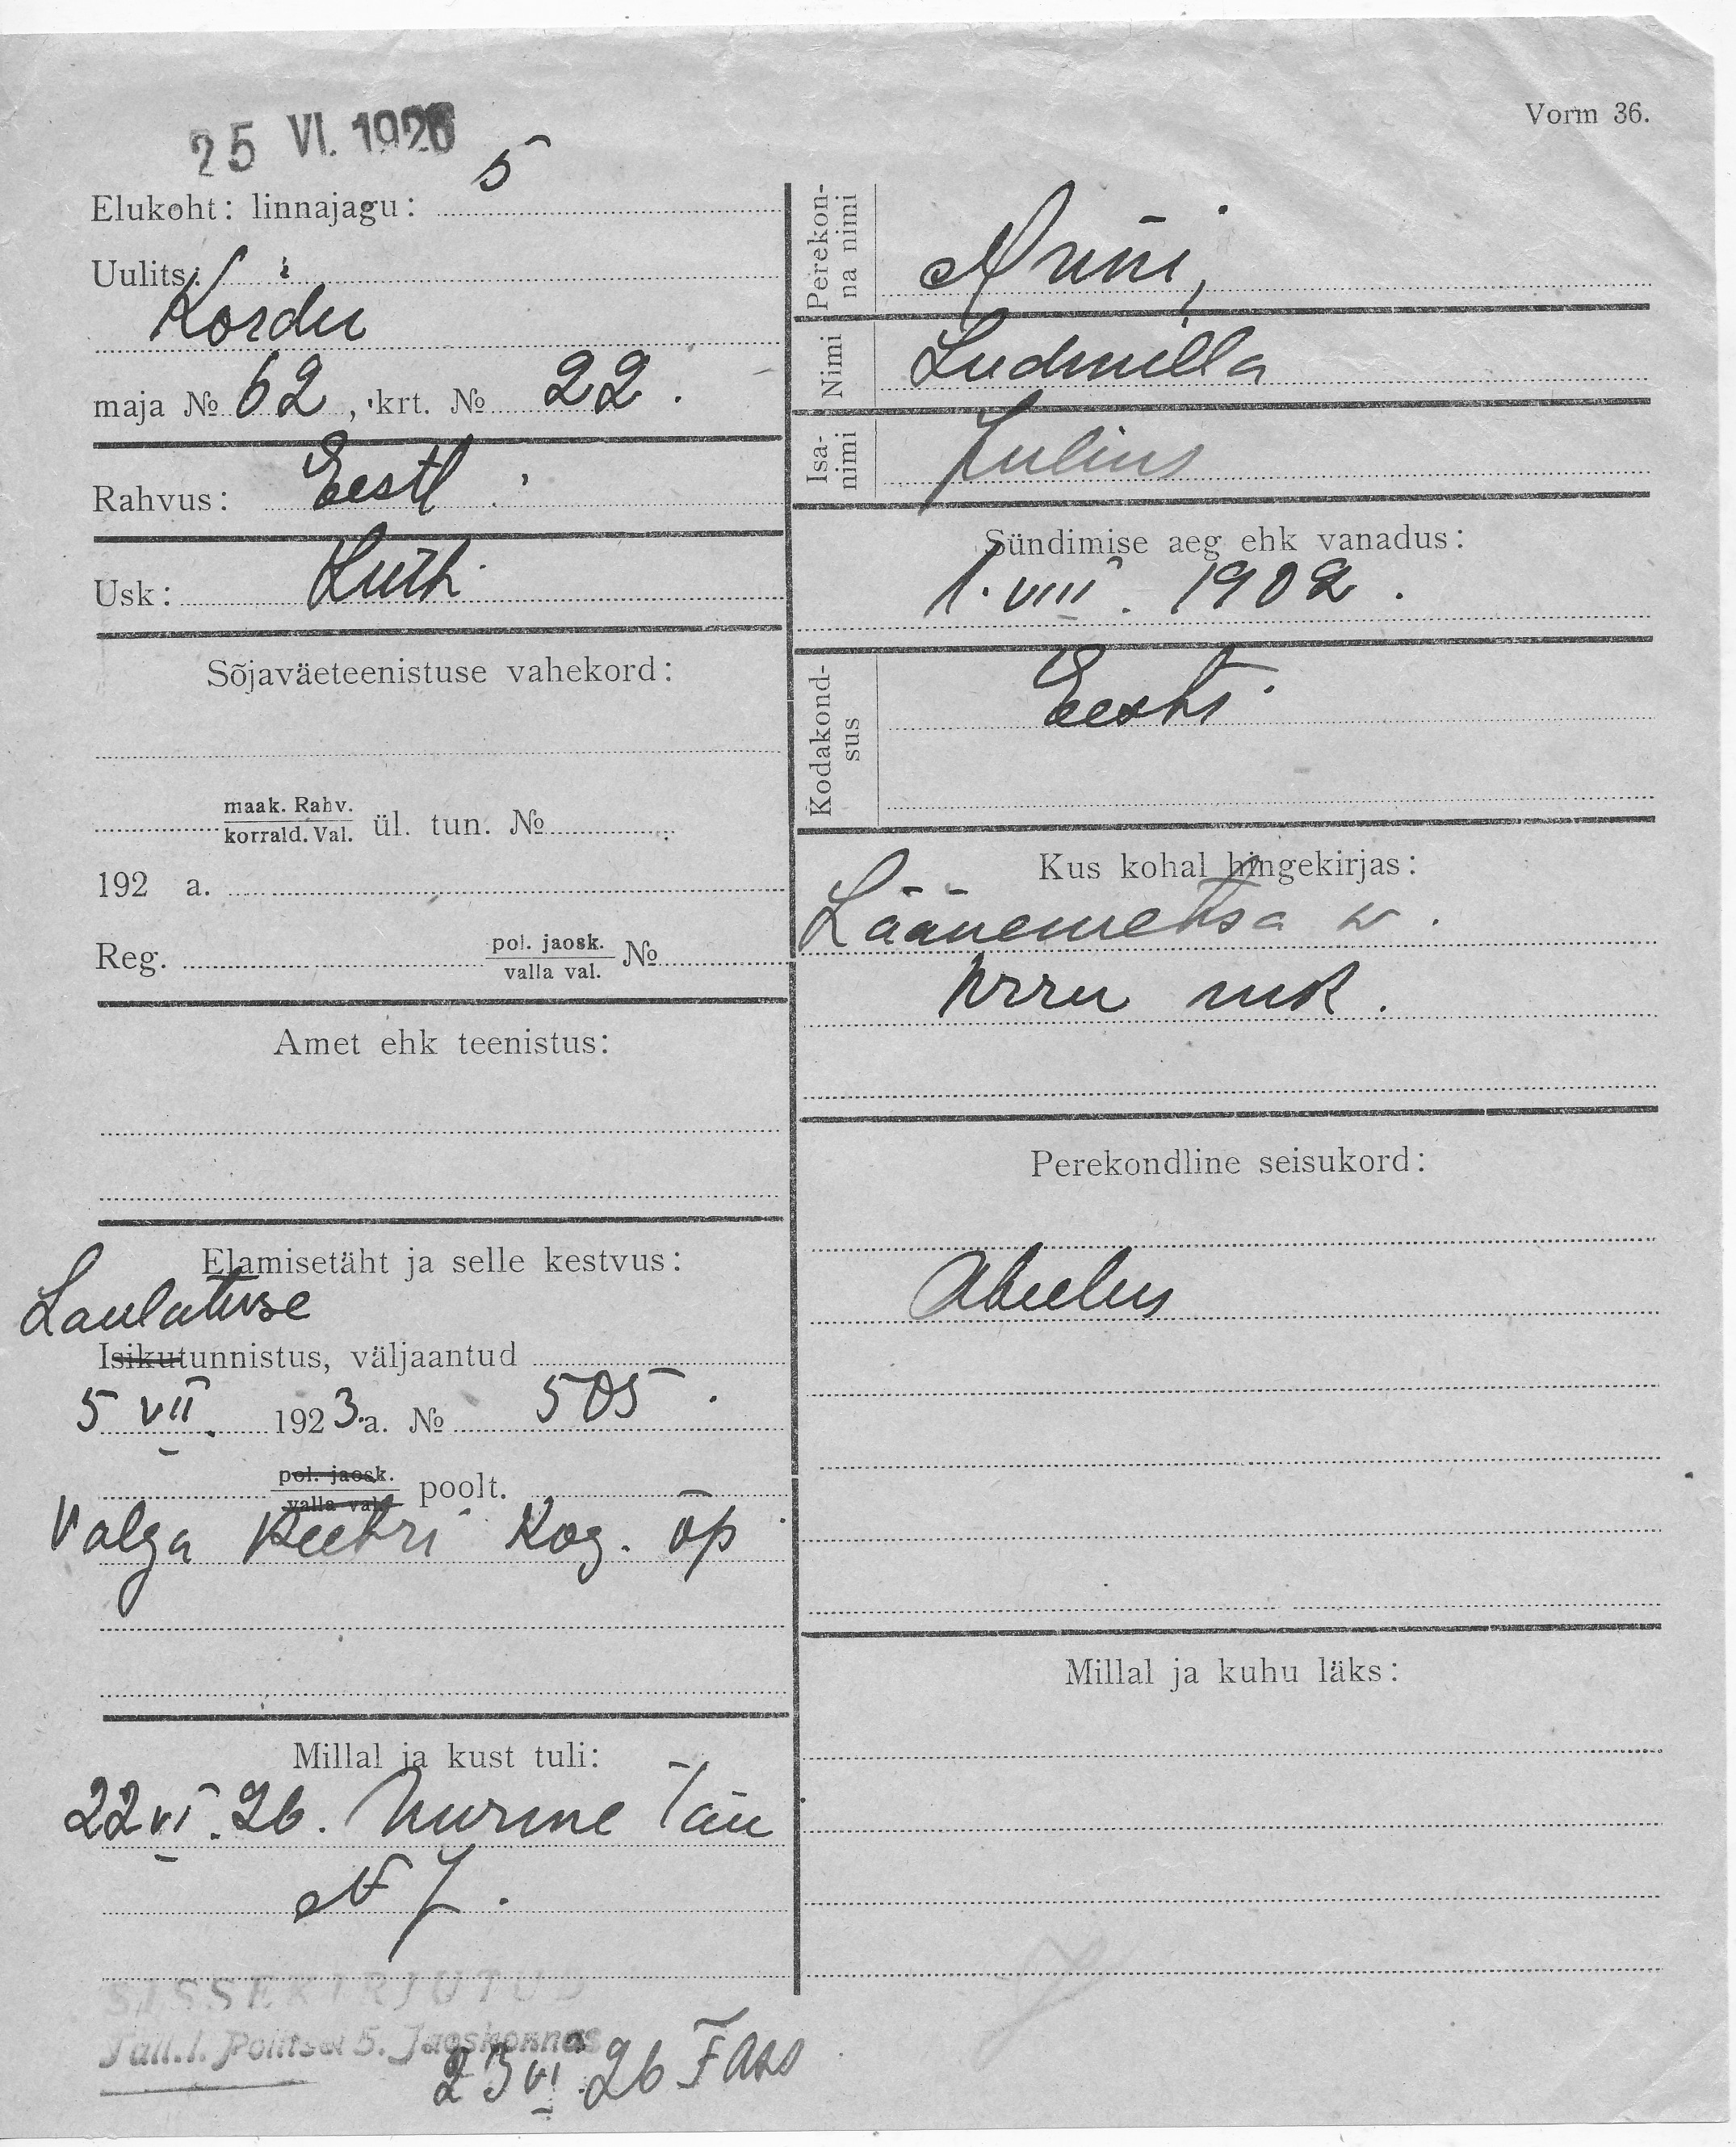 Vorm 36.
25 VI. 1926
Elukoht: linnajagu: 5
Uulits:
Kordu
maja № 62, krt. № 22.
Rahvus: Eestl
Usk: Luth.
Sõjaväeteenistuse vahekord:
maak. Rahv.
korrald. Val. ül. tun. №
192 a.
Reg. pol. jaosk.
valla val. №
Amet ehk teenistus:
Elamisetäht ja selle kestvus:
Laulatuse
Isikutunnistus, väljaantud
5 VII. 1923.a. № 505.
pol. jaosk.
valla val. poolt.
Valga Peetri Kog. õp
Millal ja kust tuli:
22 VI. 26. Nurme tän
№ 7.
SISSEKIRJUTUD
Tall. l. Politsei 5. Jaoskonnas
23 VI 26
Perekonna nimi
Nimi Ludmilla
Isanimi Julius
Sündimise aeg ehk vanadus:
1. VIII. 1902.
Kodakondsus Eesti
Kus kohal hingekirjas:
Läänemetsa w.
Wõru mk.
Perekondline seisukord:
Abielus
Millal ja kuhu läks: